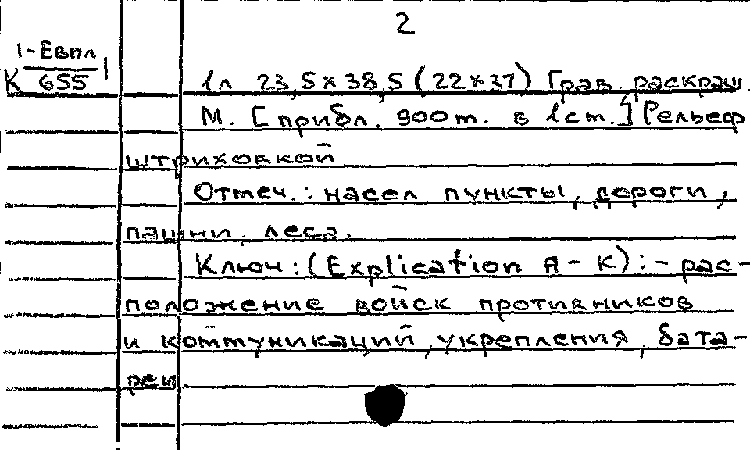 2
К 1-Евпл/655 1
1л 23,5×38,5 (22×37) Грав. раскраш.
М. [прибл. 900 т. в 1 ст.] Рельеф
штриховкой
Отмеч.: насел пункты, дороги,
пашни, леса.
Ключ: (Explication A-K): - рас-
положение войск противников
и коммуникаций, укрепления, бата-
реи